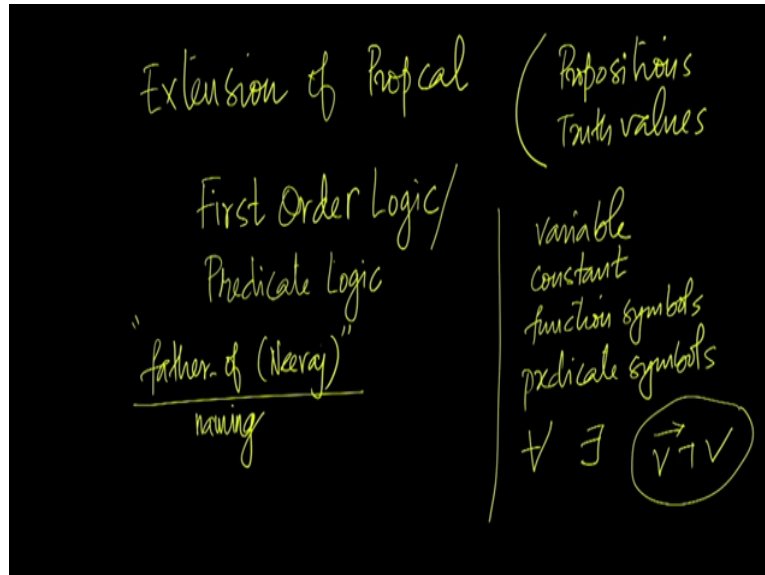 Extension of Propcal
( Propositions
Truth values
First Order Logic/
Predicate Logic
"father-of (Neeraj)"
naming
variable
constant
function symbols
predicate symbols
∀ ∃ → ∨ ¬ ∨